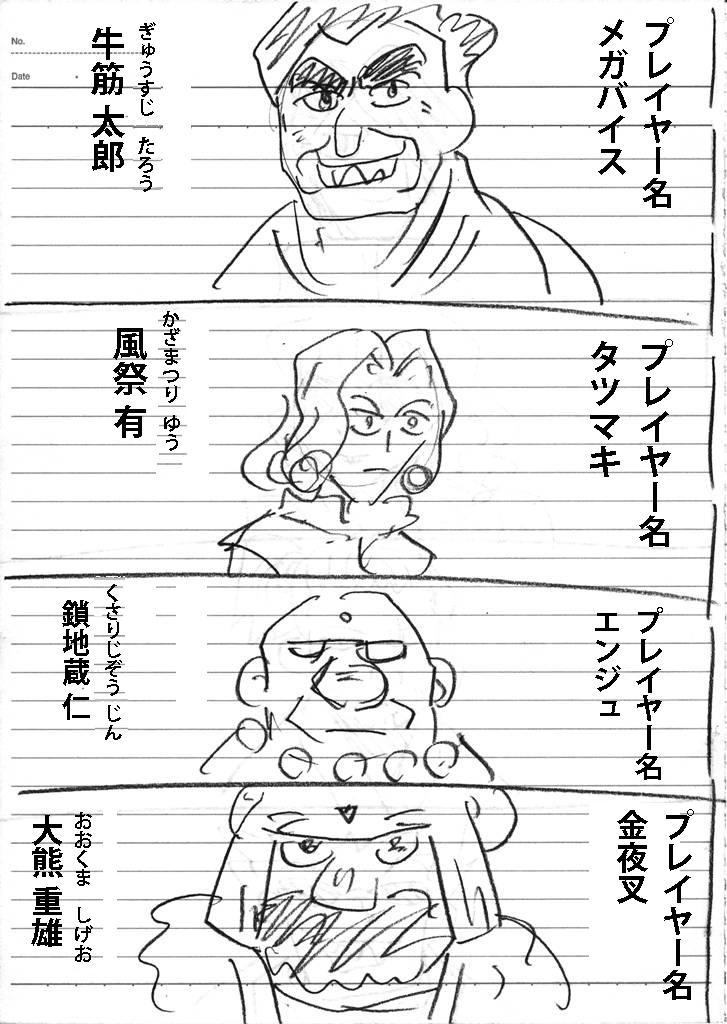 No.
Date
プレイヤー名
メガバイス
ぎゅうすじ たろう
牛筋 太郎
プレイヤー名
タツマキ
かざまつり ゆう
風祭 有
プレイヤー名
エンジュ
くさりじぞう じん
鎖地蔵 仁
プレイヤー名
金夜叉
おおくま しげお
大熊 重雄